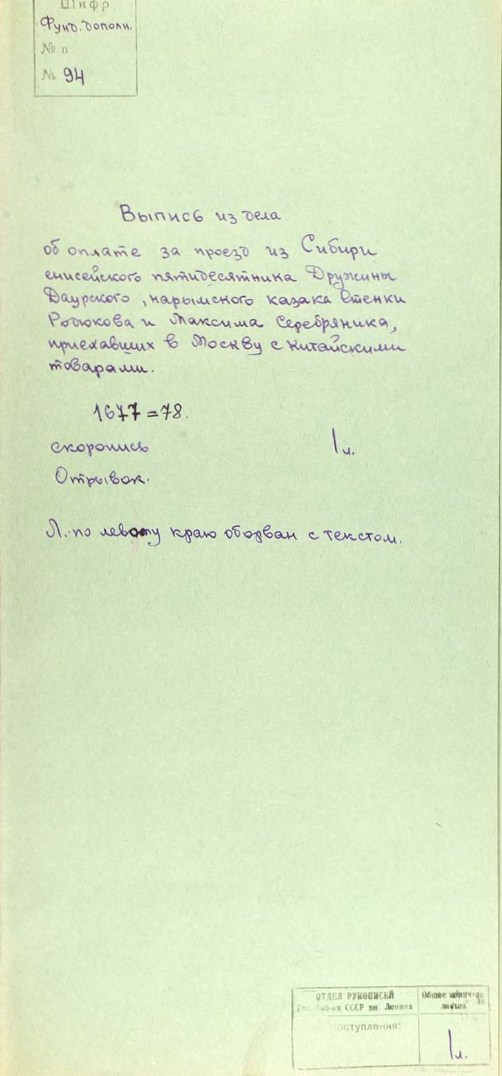 Шифр
Фунд. дополн.
№ п
№ 94
Выпись из дела
об оплате за проезд из Сибири
енисейского пятидесятника Дружины
Даурского, нарымского казака Стенки
Родюкова и Максима Серебряника,
приехавших в Москву с китайскими
товарами.
1677=78.
скоропись 1 л.
Отрывок.
Л. по левому краю оборван с текстом.
ОТДЕЛ РУКОПИСЕЙ
СССР им. Ленина
Общее
листов
поступления:
1 л.